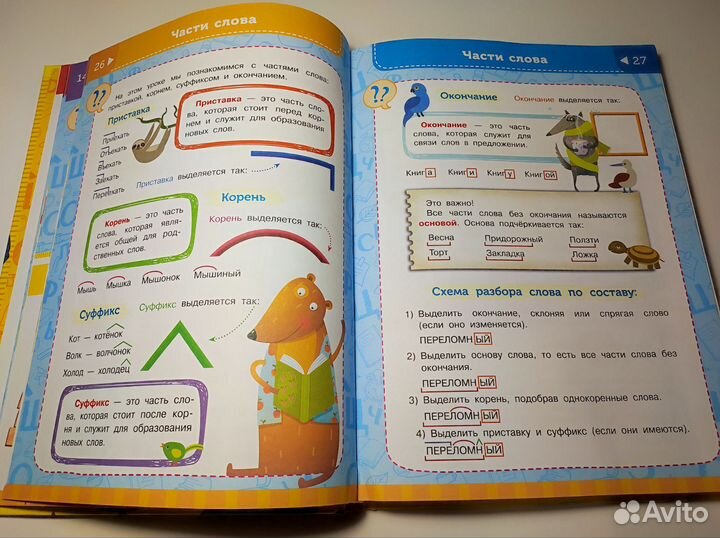 26
Части слова
14
На этом уроке мы познакомимся с частями слова:
приставкой, корнем, суффиксом и окончанием.
Приставка
Приехать
Отъехать
Въехать
Заехать
Переехать
Приставка — это часть сло-
ва, которая стоит перед кор-
нем и служит для образования
новых слов.
Приставка выделяется так:
Корень
Корень — это часть
слова, которая явля-
ется общей для род-
ственных слов.
Корень выделяется так:
Мышь Мышка Мышонок Мышиный
Суффикс
Суффикс выделяется так:
Кот — котёнок
Волк — волчонок
Холод — холодец
Суффикс — это часть сло-
ва, которая стоит после кор-
ня и служит для образования
новых слов.
Части слова
27
??
Окончание
Окончание выделяется так:
Окончание — это часть
слова, которая служит для
связи слов в предложении.
Книга Книги Книгу Книгой
Это важно!
Все части слова без окончания называются
основой. Основа подчёркивается так:
Весна Придорожный Ползти
Торт Закладка Ложка
Схема разбора слова по составу:
1) Выделить окончание, склоняя или спрягая слово
(если оно изменяется).
ПЕРЕЛОМНЫЙ
2) Выделить основу слова, то есть все части слова без
окончания.
ПЕРЕЛОМНЫЙ
3) Выделить корень, подобрав однокоренные слова.
ПЕРЕЛОМНЫЙ
4) Выделить приставку и суффикс (если они имеются).
ПЕРЕЛОМНЫЙ
Avito